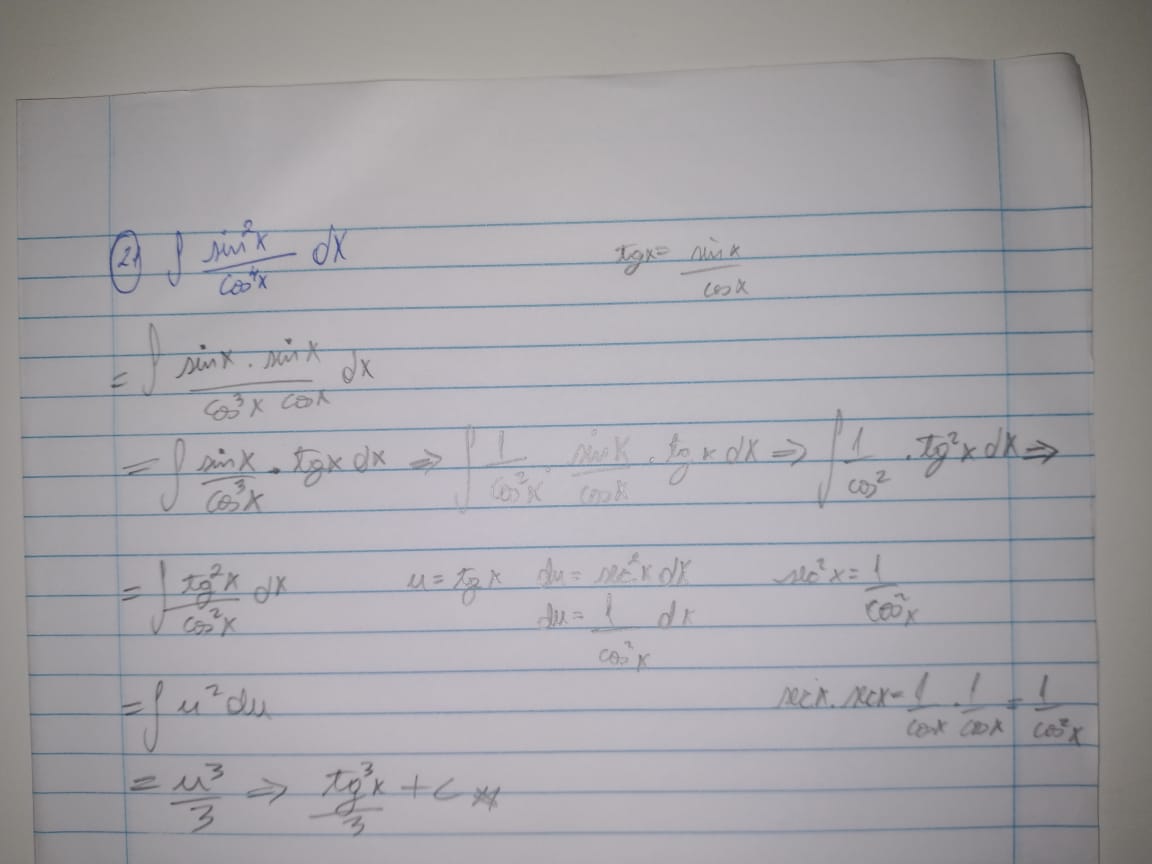 21 ∫ sin²x/cos⁴x dx    tgx = sinx/cosx
= ∫ sinx . sinx/cos³x cosx dx
= ∫ sinx/cos³x . tgx dx ⇒ ∫ 1/cos²x . sinx/cosx . tgx dx ⇒ ∫ 1/cos² . tg²x dx ⇒
= ∫ tg²x/cos²x dx    u = tgx    du = sec²x dx    sec²x = 1/cos²x
du = 1/cos²x dx
= ∫ u² du    secx . secx = 1/cosx . 1/cosx = 1/cos²x
= u³/3 ⇒ tg³x/3 + c